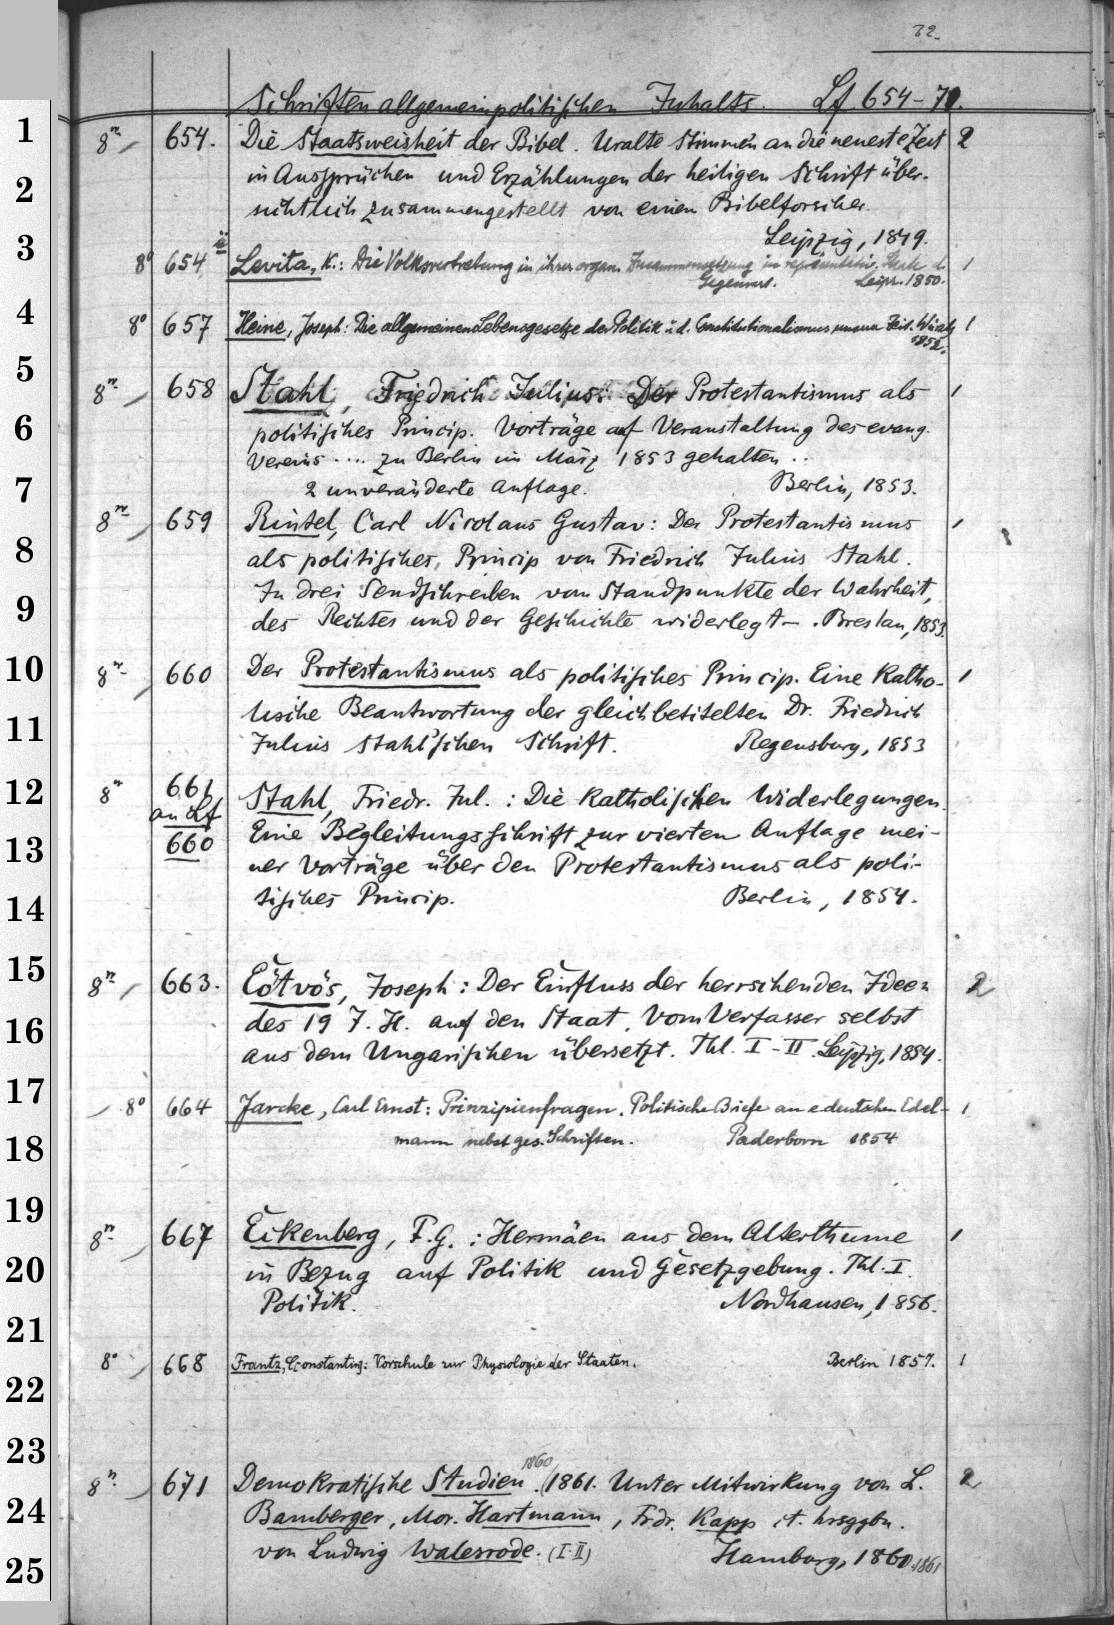 32.
Schriften allgemeinpolitischen Inhalts. Lf 654-71.
1
8° 654. Die Staatsweisheit der Bibel. Uralte Stimmen an die neueste Zeit 2
2
in Aussprüchen und Erzählungen der heiligen Schrift über-
sichtlich zusammengestellt von einem Bibelforscher.
Leipzig, 1849.
3
8° 654 Levita, K.: Die Volksvertretung in ihrer organ. Zusammensetzung im repräsentativ. Staate d. 1
Gegenwart. Leipz. 1850.
4
8° 657 Heine, Joseph: Die allgemeinen Lebensgesetze der Politik u. d. Constitutionalismus unserer Zeit. Würzb 1
1852.
5
8° 658 Stahl, Friedrich Julius: Der Protestantismus als 1
6
politisches Princip. Vorträge auf Veranstaltung des evang.
Vereins .... zu Berlin im März 1853 gehalten ..
7
2 unveränderte Auflage. Berlin, 1853.
8° 659 Rintel, Carl Nicolaus Gustav: Der Protestantismus 1
8
als politisches Princip von Friedrich Julius Stahl.
In drei Sendschreiben vom Standpunkte der Wahrheit,
9
des Rechtes und der Geschichte widerlegt. Breslau, 1853.
10
8° 660 Der Protestantismus als politisches Princip. Eine Katho- 1
11
lische Beantwortung der gleichbetitelten Dr. Friedrich
Julius Stahl'schen Schrift. Regensburg, 1853
12
8° 661 an Lf 660 Stahl, Friedr. Jul.: Die Katholischen Widerlegungen.
13
Eine Begleitungsschrift zur vierten Auflage mei-
ner Vorträge über den Protestantismus als poli-
14
tisches Princip. Berlin, 1854.
15
8° 663. Eötvös, Joseph: Der Einfluss der herrschenden Ideen 2
16
des 19 J. H. auf den Staat. Vom Verfasser selbst
aus dem Ungarischen übersetzt. Thl. I-II. Leipzig, 1854.
17
8° 664 Jarcke, Carl Ernst: Prinzipienfragen. Politische Briefe an e deutschen Edel- 1
18
mann nebst ges. Schriften. Paderborn 1854
19
8° 667 Eikenberg, F. G.: Hermäen aus dem Alterthume 1
20
in Bezug auf Politik und Gesetzgebung. Thl. I.
Politik. Nordhausen, 1856.
21
8° 668 Frantz, C[onstantin]: Vorschule zur Physiologie der Staaten. Berlin 1857. 1
22
23
8° 671 Demokratische Studien. 1860/1861. Unter Mitwirkung von L. 2
24
Bamberger, Mor. Hartmann, Frdr. Kapp hrsggbn.
25
von Ludwig Walesrode. (I-II) Hamburg, 1860. 1861